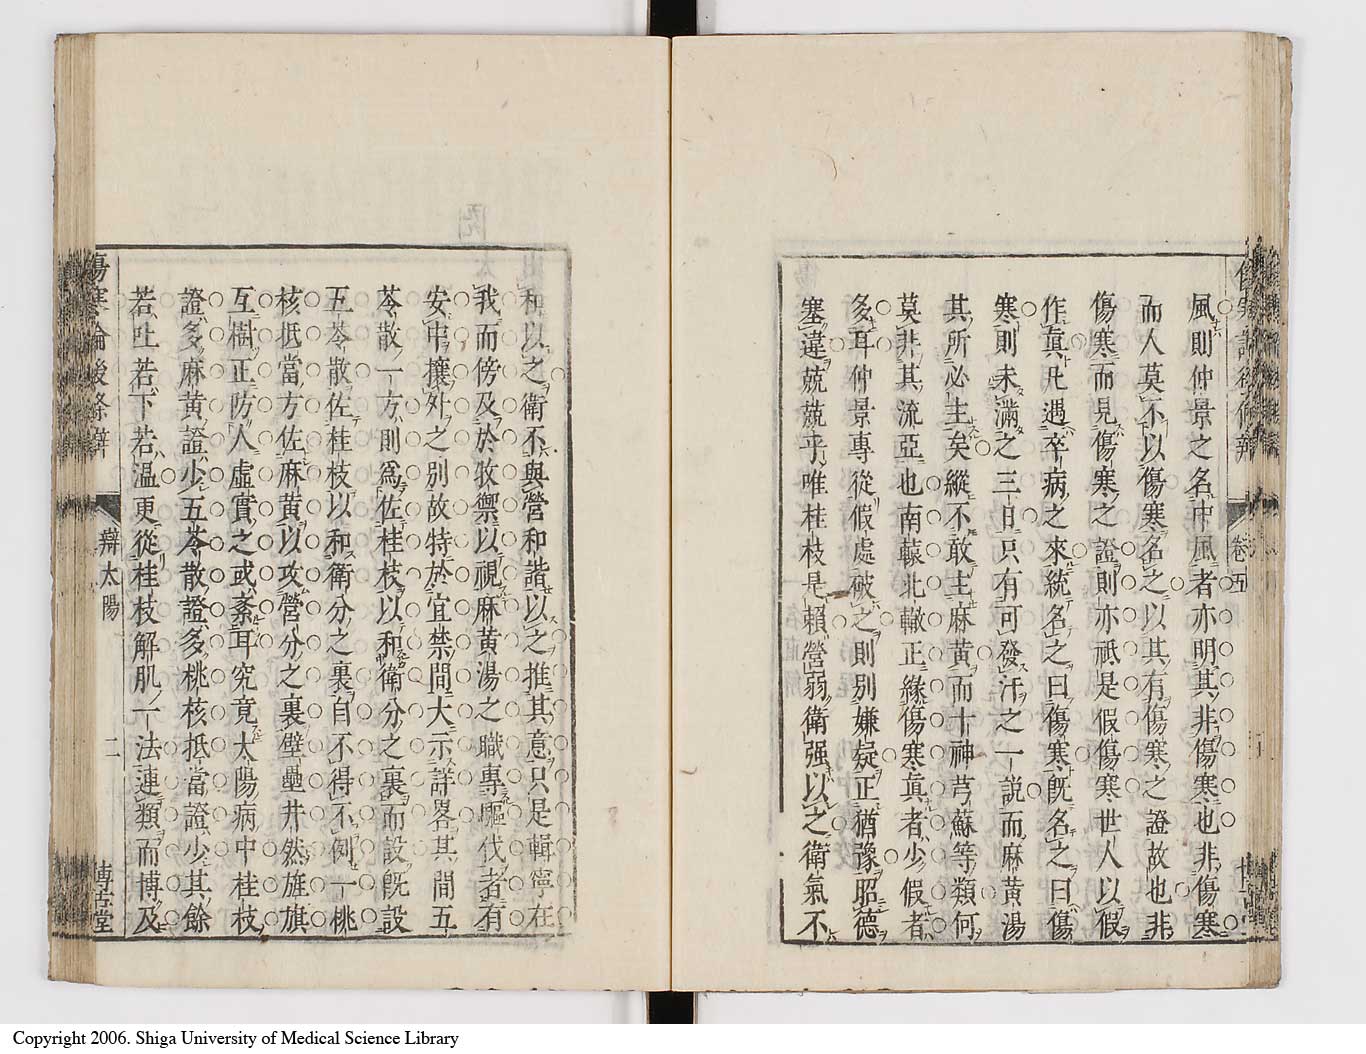 風則仲景之名中風者亦明其非傷寒也非傷寒
而人莫不以傷寒名之以其有傷寒之證故也非
傷寒而見傷寒之證則亦祗是假傷寒世人以假
作眞凡遇卒病之來統名之曰傷寒旣名之曰傷
寒則未滿之三日只有可發汗之一說而麻黃湯
其所必主矣縱不敢主麻黃而十神芎蘇等類何
莫非其流亞也南轅北轍正緣傷寒眞者少假者
多耳仲景專從假處破之則別嫌疑正猶豫昭德
塞違兢兢乎唯桂枝是賴營弱衛强以之衛氣不
卷五
和以之衛不與營和諧以之推其意只是輯寧在
我而傍及於牧禦以視麻黃湯之職專驅伐者有
安中攘外之別故特於宜禁間大示詳畧其間五
苓散一方則爲佐桂枝以和衛分之裏而設旣設
五苓散佐桂枝以和衛分之裏自不得不例一桃
核抵當方佐麻黃以攻營分之裏壁壘井然旌旗
互樹正防人虛實之或紊耳究竟太陽病中桂枝
證多麻黃證少五苓散證多桃核抵當證少其餘
若吐若下若溫更從桂枝解肌一法連類而博及
傷寒論後條辨
辯太陽
二
博古堂
Copyright 2006. Shiga University of Medical Science Library